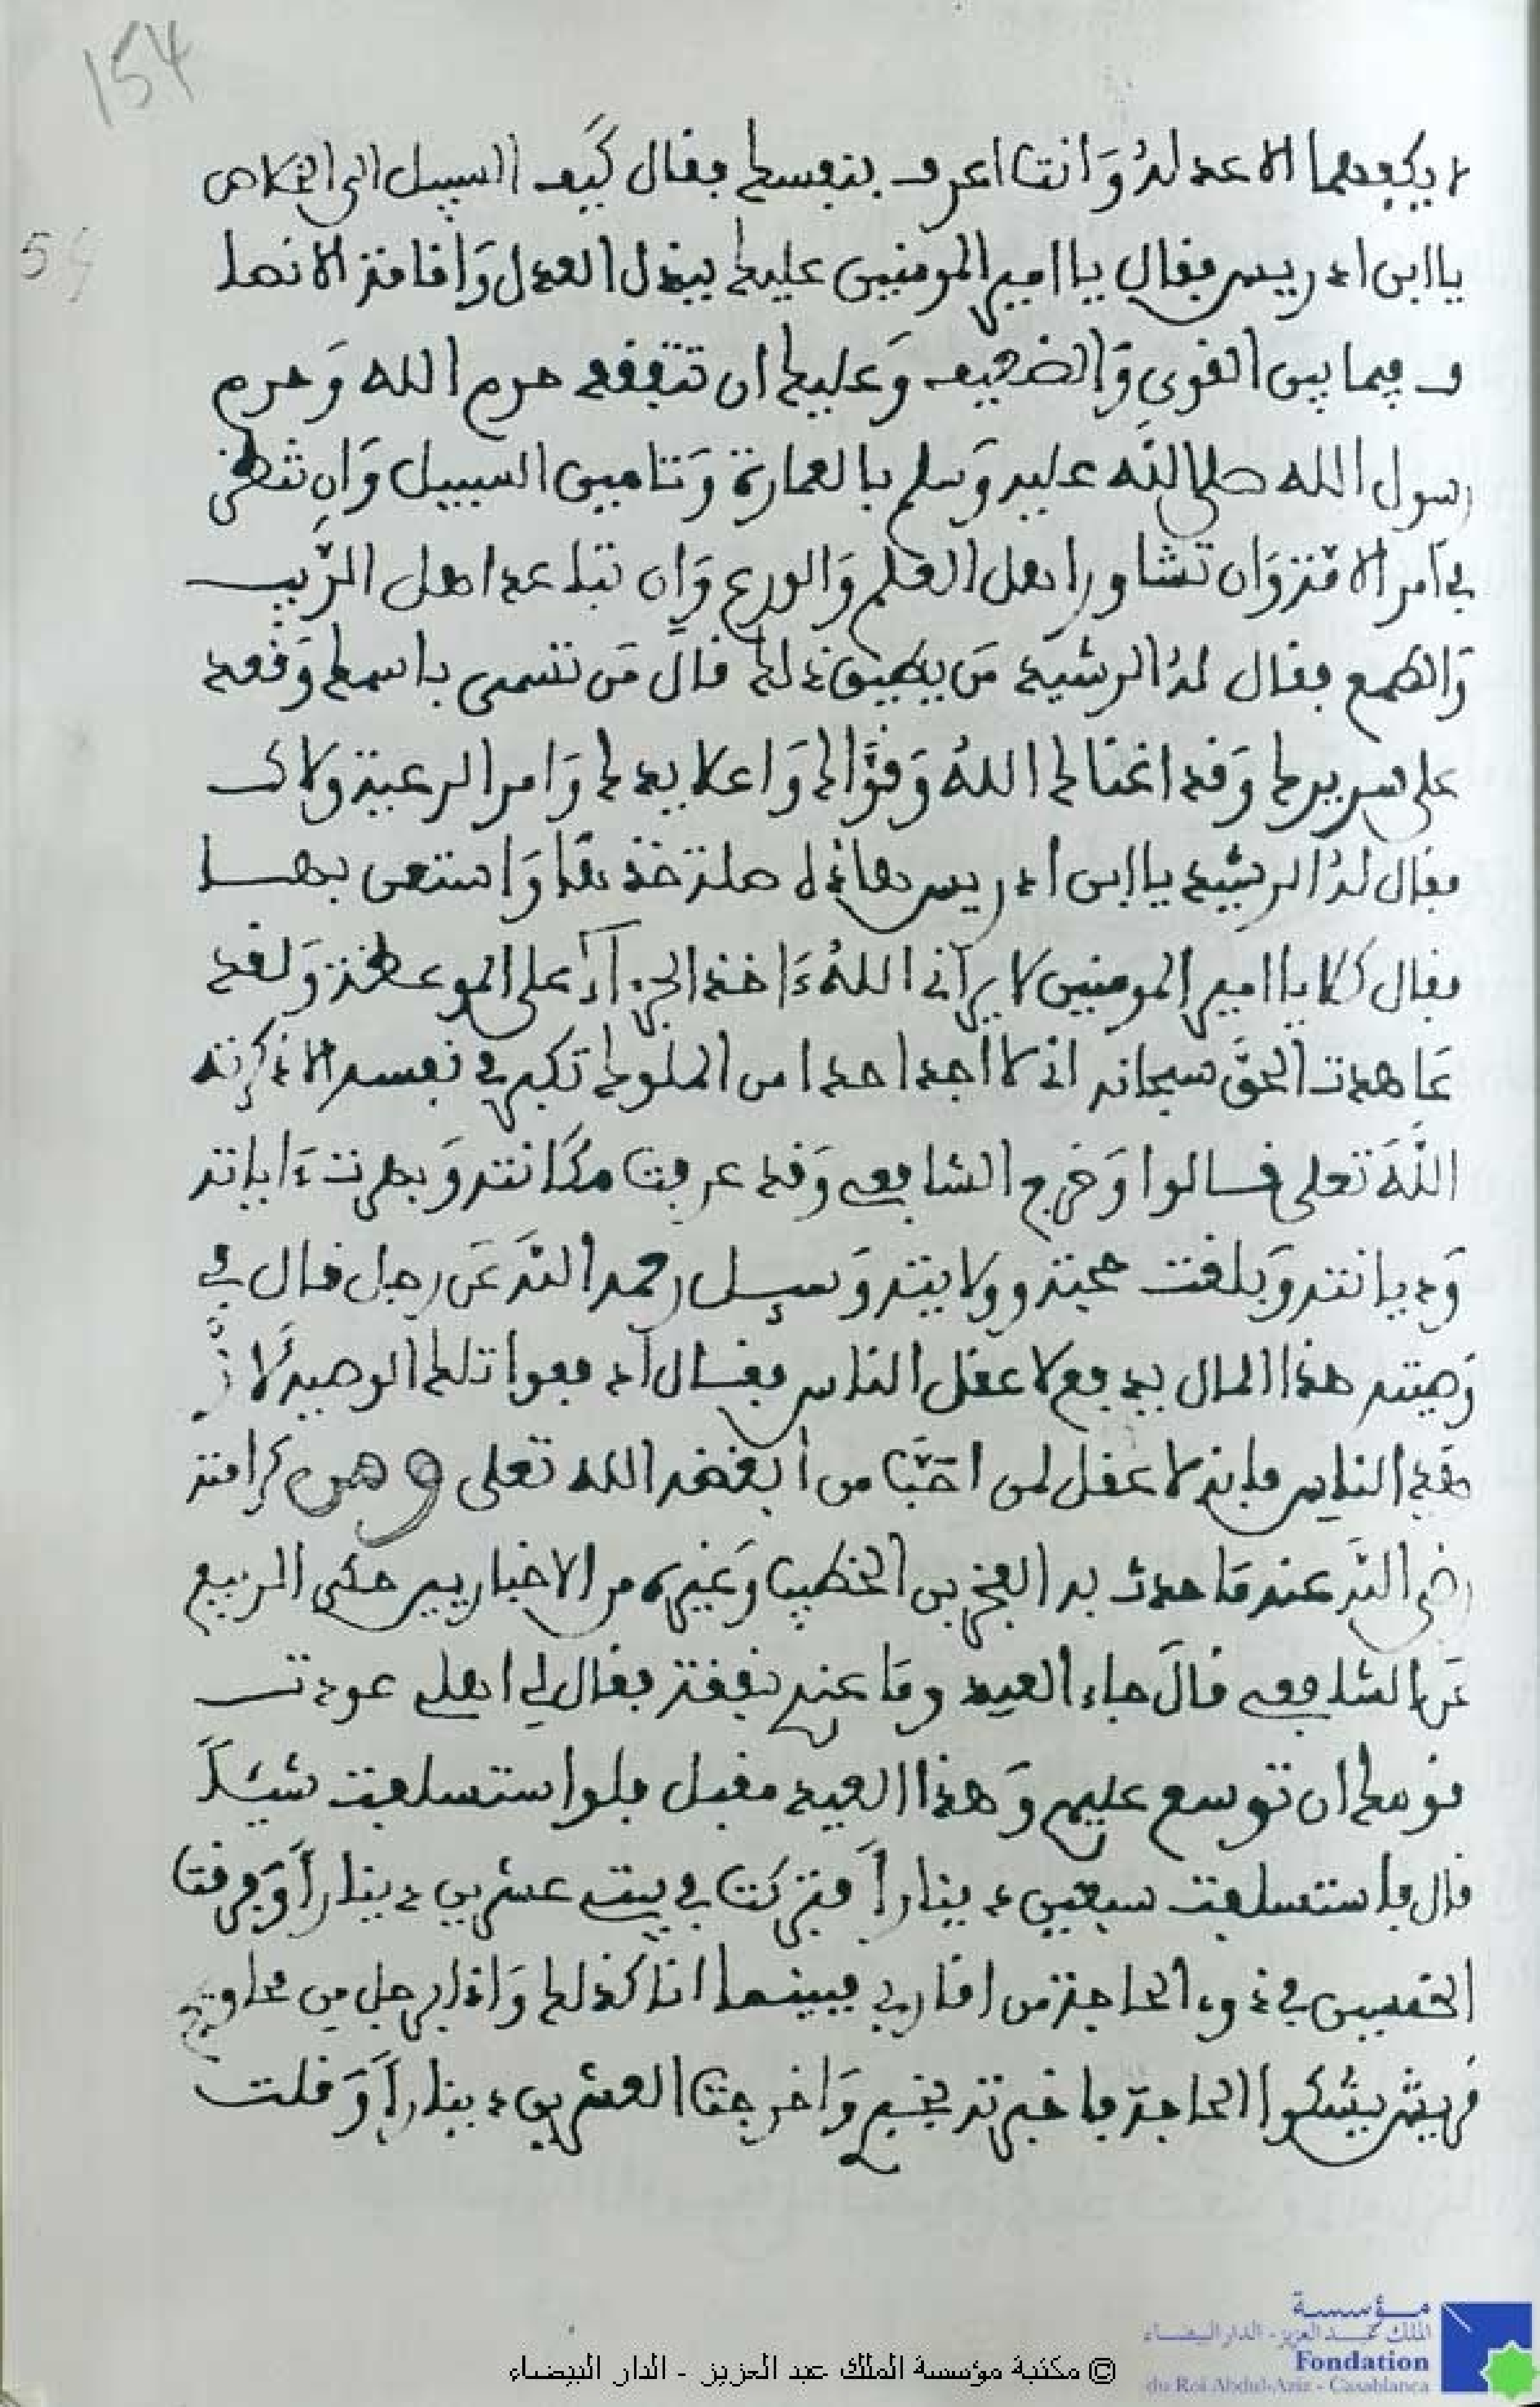 154
54
لا يطفيهما الا عدله وَانت اعرف بنفسك فقال كَيف السبيل الى الخلاص
يا ابن ادريس فقال يا امير المومنين عليك ببذل العدل وَاقامة الانصا
ف فيما بين القوي وَالضعيف وَعليك ان تتفقد حرم الله وَحرم
رسول الله صلى الله عليه وَسلم بالعمارة وَتامين السبيل وَان تنظر
في امر الامة وَان تشاور اهل العلم وَالورع وَان تباعد اهل الرّيب
وَالطمع فقال لهُ الرشيد مَن يطيق ذلك قالَ مَن تسمى باسمك وَقعد
على سريرك وَقد اغناك اللهُ وَقوَّاك وَاعلا يدك وَامر الرعية ولاك
فقال لهُ الرشيد يا ابن ادريس هاذه صلة خذها وَاستعن بها
فقال كلا يا امير المومنين لا يرآني اللهُ ءَاخذ الجزآءَ على الموعظة وَلقد
عَاهدت الحقَّ سبحانه اني لا اجد احدا من الملوك تكبر في نفسه الا ذكرته
اللَّهَ تعلى قالوا وَخرج الشافعي وَقد عرفت مكَانته وَبهرت ءَاياته
وَديانته وَبلغت محبته وولايته وَسيل رحمه اللهَ عَن رجل قال في
وَصيته هذا المال يدفع لاعقل الناس فقال ادفعوا تلك الوصية لازْ
هد الناس فانه لا عقل لمن احَبَّ من ابغضه الله تعلى ومن كرامته
رضي اللهَ عنه مَا حدث به الفخر بن الخطيب وَغيره من الاخباريين حكى الربيع
عَن الشافعي قالَ جاء العيد ومَا عندي نفقة فقال لي اهلي عودت
قومك ان توسع عليهم وَهذا العيد مقبل فلو استسلفت شيئاً
قال فاستسلفت سبعين ديناراً فتركت في بيتي عشرين ديناراً وَفرقت
الخمسين في ذوي الحاجة من اقاربي فبينما انا كذلك وَاذا برجل من محاويج
قريش يشكوا الحاجة فاخبرته بخبري وَاخرجت العشرين ديناراً وَقلت
© مكتبة مؤسسة الملك عبد العزيز - الدار البيضاء
مؤسسة
الملك عبد العزيز - الدار البيضاء
Fondation
du Roi Abdul-Aziz - Casablanca